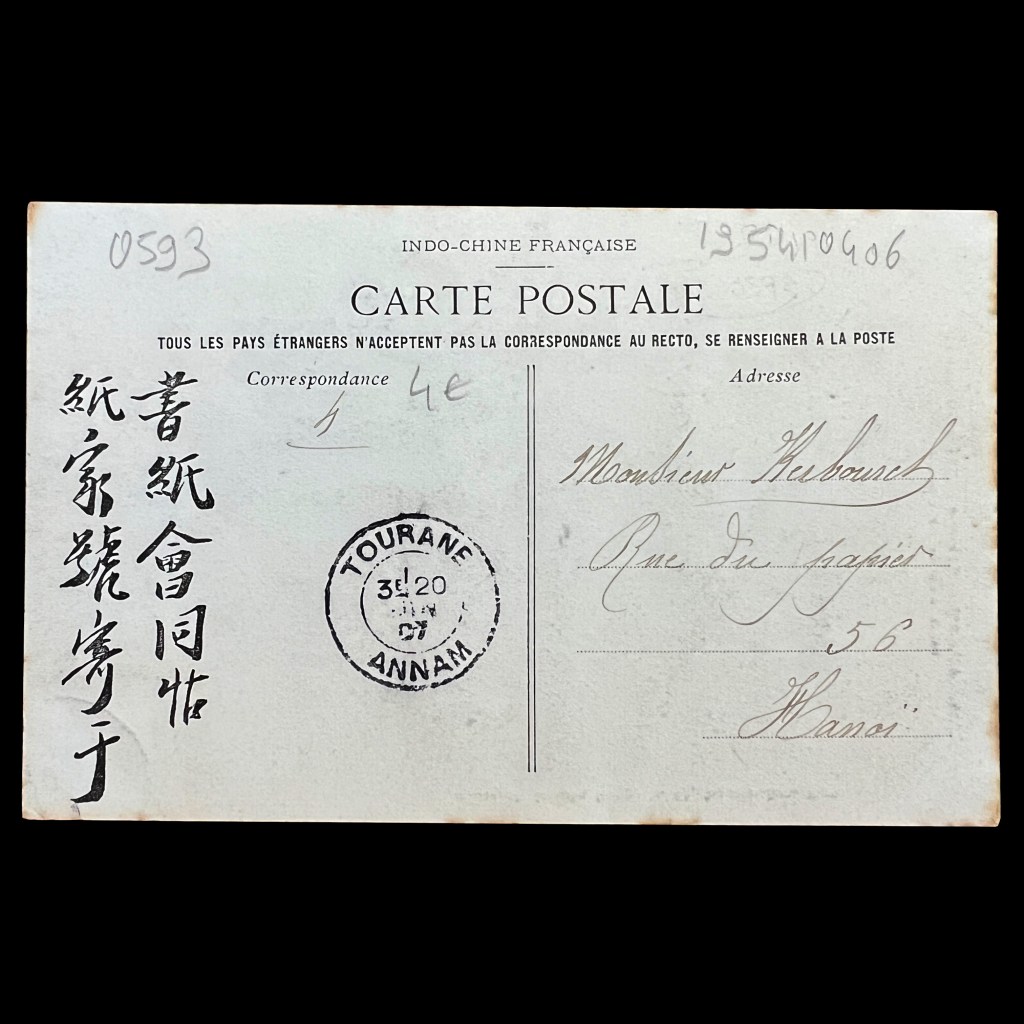 0593
195410406
INDO-CHINE FRANÇAISE
CARTE POSTALE
TOUS LES PAYS ÉTRANGERS N'ACCEPTENT PAS LA CORRESPONDANCE AU RECTO, SE RENSEIGNER A LA POSTE
Correspondance
4€
Adresse
書紙會同怗
紙家號寄于
TOURANE
20
07
ANNAM
Monsieur
Rue du papier
56
Hanoï